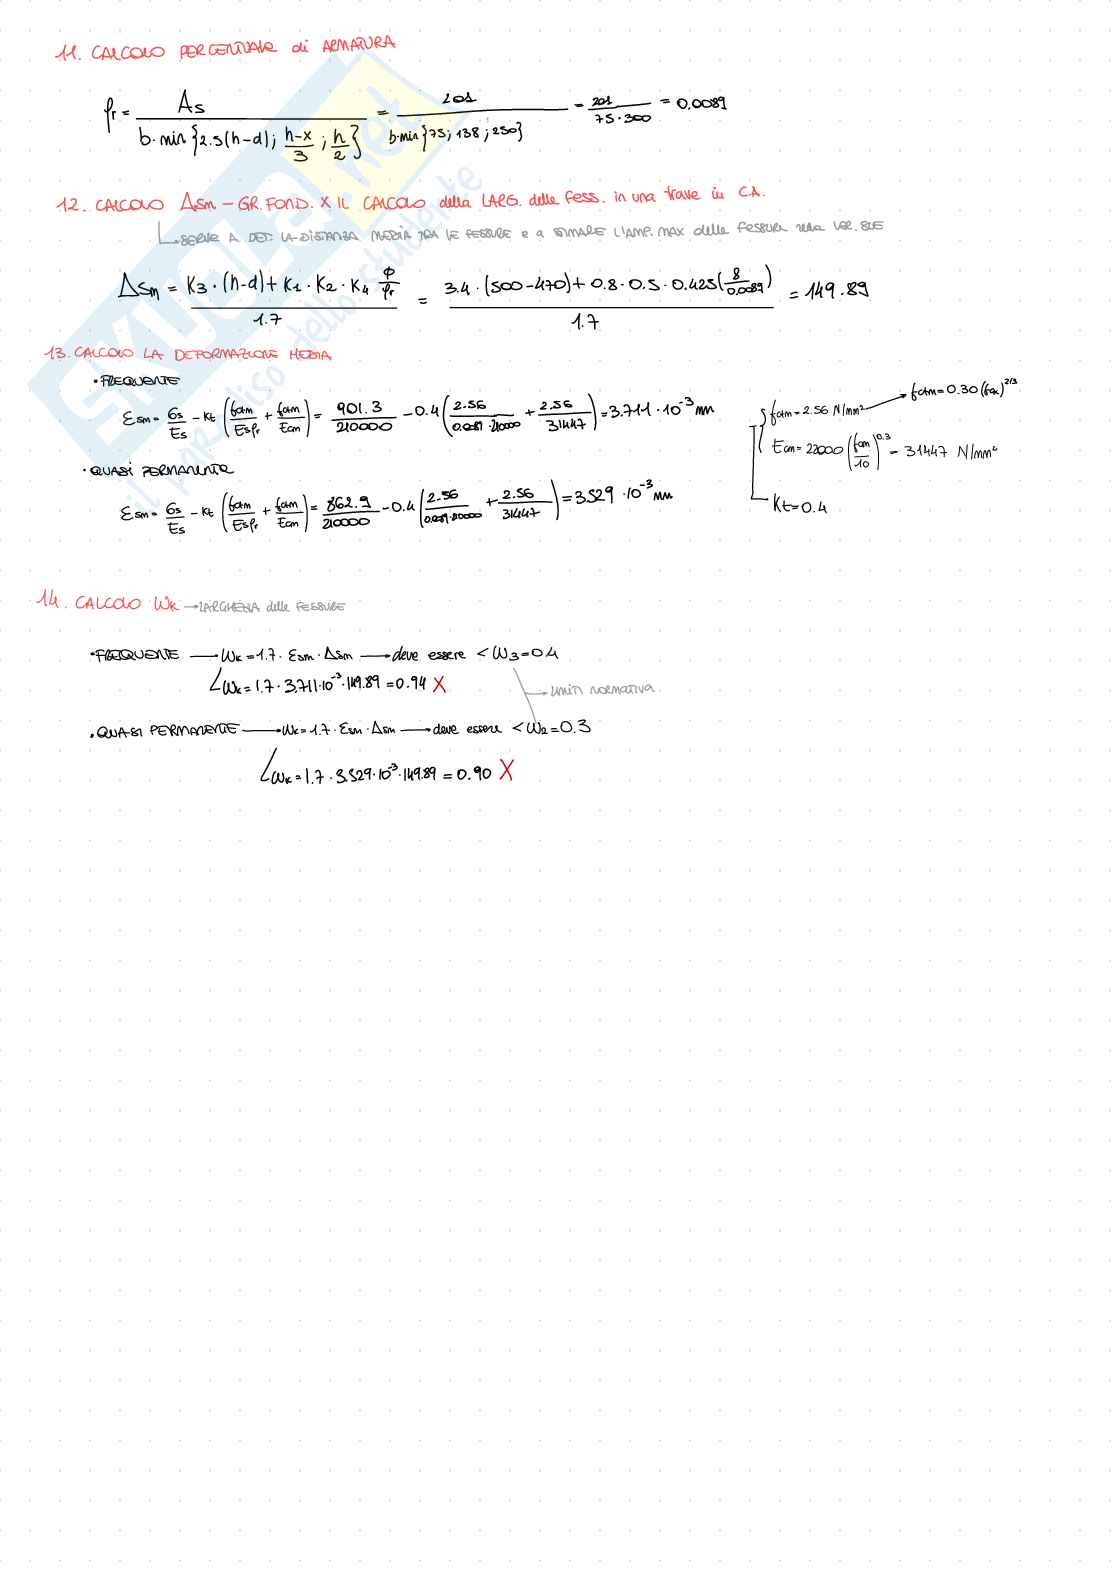 11. CALCOLO PERCENTUALE di ARMATURA
ρr = As / b·min{2.5(h-d); h-x/3; h/2} = 201 / b·min{75; 138; 250} = 201 / 75·300 = 0.0089
12. CALCOLO Δsm – GR. FOND. X IL CALCOLO della LARG. delle fess. in una trave in C.A.
SERVE A DET. LA DISTANZA MEDIA TRA LE FESSURE e a STIMARE L'AMP. MAX delle fessure nella VER. SLE
Δsm = K3·(h-d)+K1·K2·K4 ϕ/ρr / 1.7 = 3.4·(500-470)+0.8·0.5·0.425(8/0.0089) / 1.7 = 149.89
13. CALCOLO LA DEFORMAZIONE MEDIA
• FREQUENTE
εsm = σs/Es - Kt (fctm/Esρr + fctm/Ecm) = 901.3/210000 - 0.4 (2.56/0.0089·210000 + 2.56/31447) = 3.711·10⁻³ mm
fctm = 2.56 N/mm² → fctm = 0.30 (fck)^2/3
Ecm = 22000 (fcm/10)^0.3 = 31447 N/mm²
Kt = 0.4
• QUASI PERMANENTE
εsm = σs/Es - Kt (fctm/Esρr + fctm/Ecm) = 862.9/210000 - 0.4 (2.56/0.0089·210000 + 2.56/31447) = 3.529·10⁻³ mm
14. CALCOLO Wk → LARGHEZZA delle FESSURE
• FREQUENTE → Wk = 1.7· εsm·Δsm → deve essere < W3 = 0.4
Wk = 1.7·3.711·10⁻³·149.89 = 0.94 X
LIMITI NORMATIVA
• QUASI PERMANENTE → Wk = 1.7· εsm·Δsm → deve essere < W2 = 0.3
Wk = 1.7·3.529·10⁻³·149.89 = 0.90 X
SKUOLA.net
il paradiso dello studente